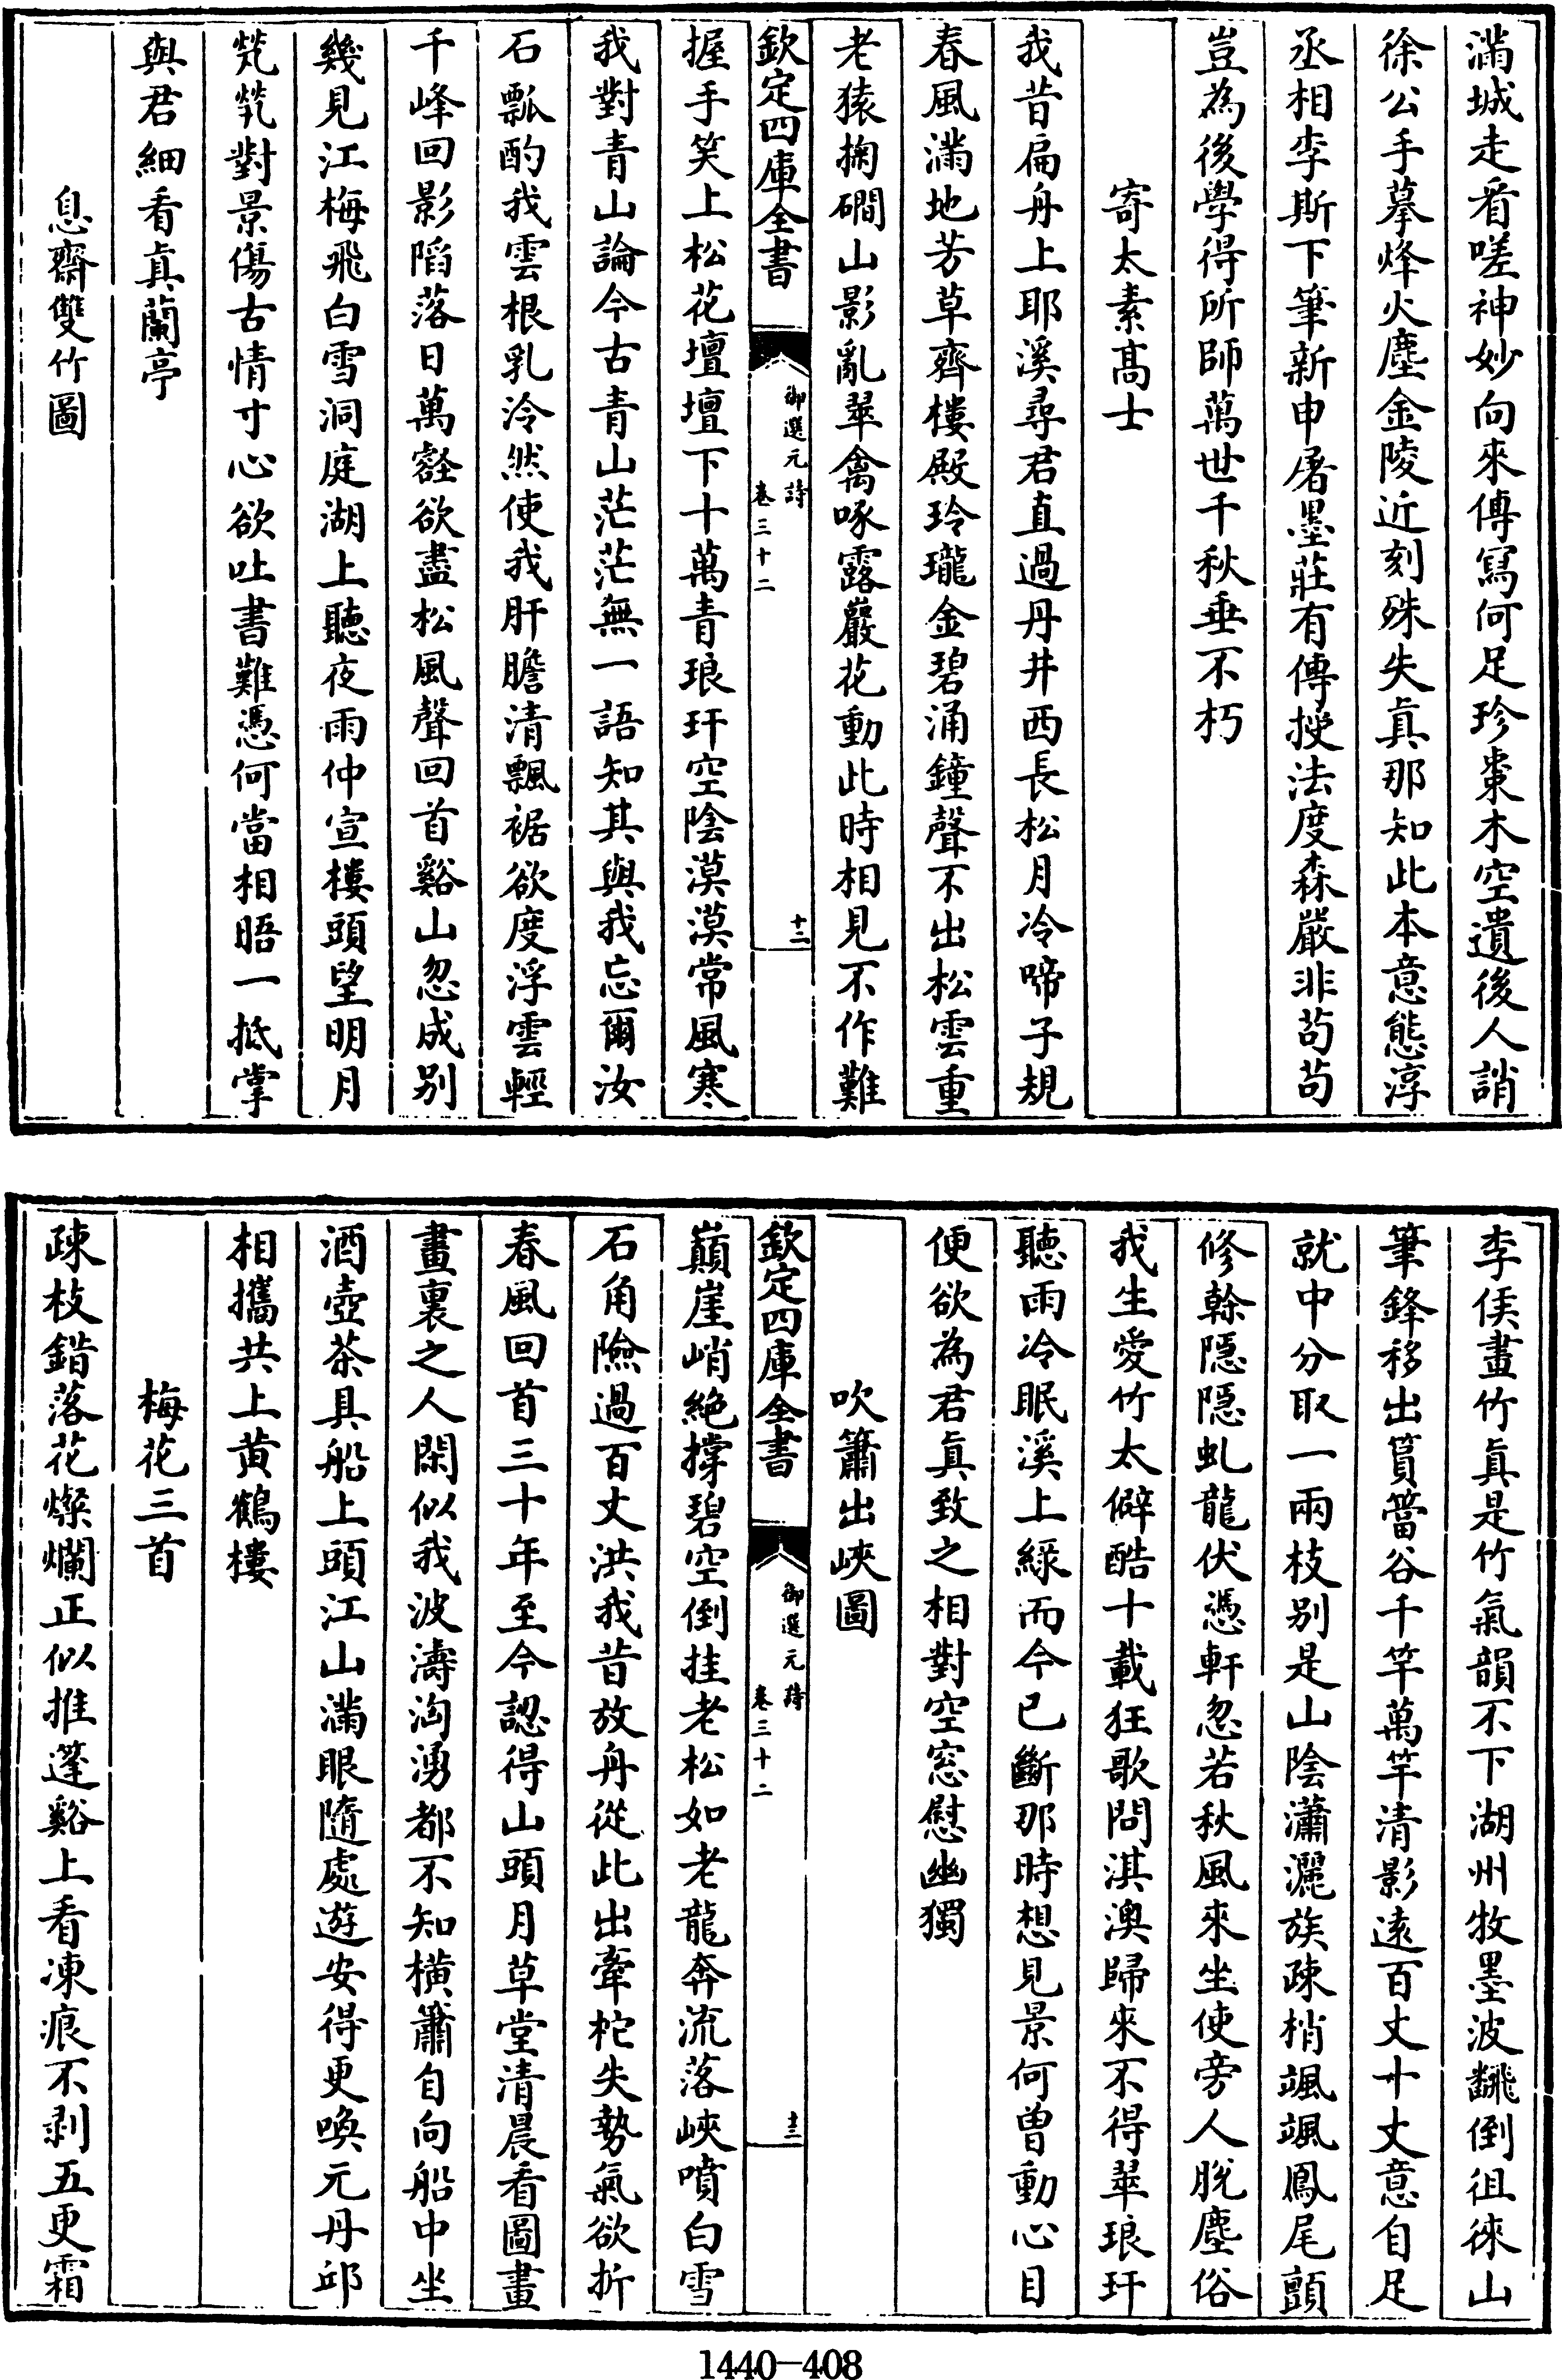 滿城走看嗟神妙向來傳寫何足珍棗木空遺後人誚
徐公手摹烽火塵金陵近刻殊失真那知此本意態淳
丞相李斯下筆新申屠墨莊有傳授法度森嚴非苟苟
豈為後學得所師萬世千秋垂不朽
寄太素髙士
我昔扁舟上耶溪尋君直過丹井西長松月冷啼子規
春風滿地芳草齊樓殿玲瓏金碧涌鐘聲不出松雲重
老猿掬磵山影亂翠禽啄露巖花動此時相見不作難
欽定四庫全書
御選元詩
卷三十二
十二
握手笑上松花壇壇下十萬青琅玕空陰漠漠常風寒
我對青山論今古青山茫茫無一語知其與我忘爾汝
石瓢酌我雲根乳泠然使我肝膽清飄裾欲度浮雲輕
千峰回影䧟落日萬壑欲盡松風聲回首谿山忽成别
幾見江梅飛白雪洞庭湖上聽夜雨仲宣樓頭望明月
煢煢對景傷古情寸心欲吐書難憑何當相晤一抵掌
與君細看真蘭亭
息齋雙竹圖
李侯畫竹真是竹氣韻不下湖州牧墨波翻倒徂徠山
筆鋒移出篔簹谷千竿萬竿清影逺百丈十丈意自足
就中分取一兩枝别是山陰瀟灑族疎梢颯颯鳳尾顫
修榦隱隱虬龍伏憑軒忽若秋風來坐使旁人脫塵俗
我生愛竹太僻酷十載狂歌問淇澳歸來不得翠琅玕
聽雨冷眠溪上緑而今已斷那時想見景何曾動心目
便欲為君真致之相對空窓慰幽獨
吹簫出峽圖
欽定四庫全書
御選元詩
卷三十二
十三
巔崖峭絶撐碧空倒挂老松如老龍奔流落峽噴白雪
石角險過百丈洪我昔放舟從此出牽柁失勢氣欲折
春風回首三十年至今認得山頭月草堂清晨看圖畫
畫裏之人閑似我波濤洶湧都不知横簫自向船中坐
酒壺茶具船上頭江山滿眼隨處遊安得更喚元丹邱
相攜共上黄鶴樓
梅花三首
疎枝錯落花燦爛正似推篷谿上看凍痕不剥五更霜
1440—408